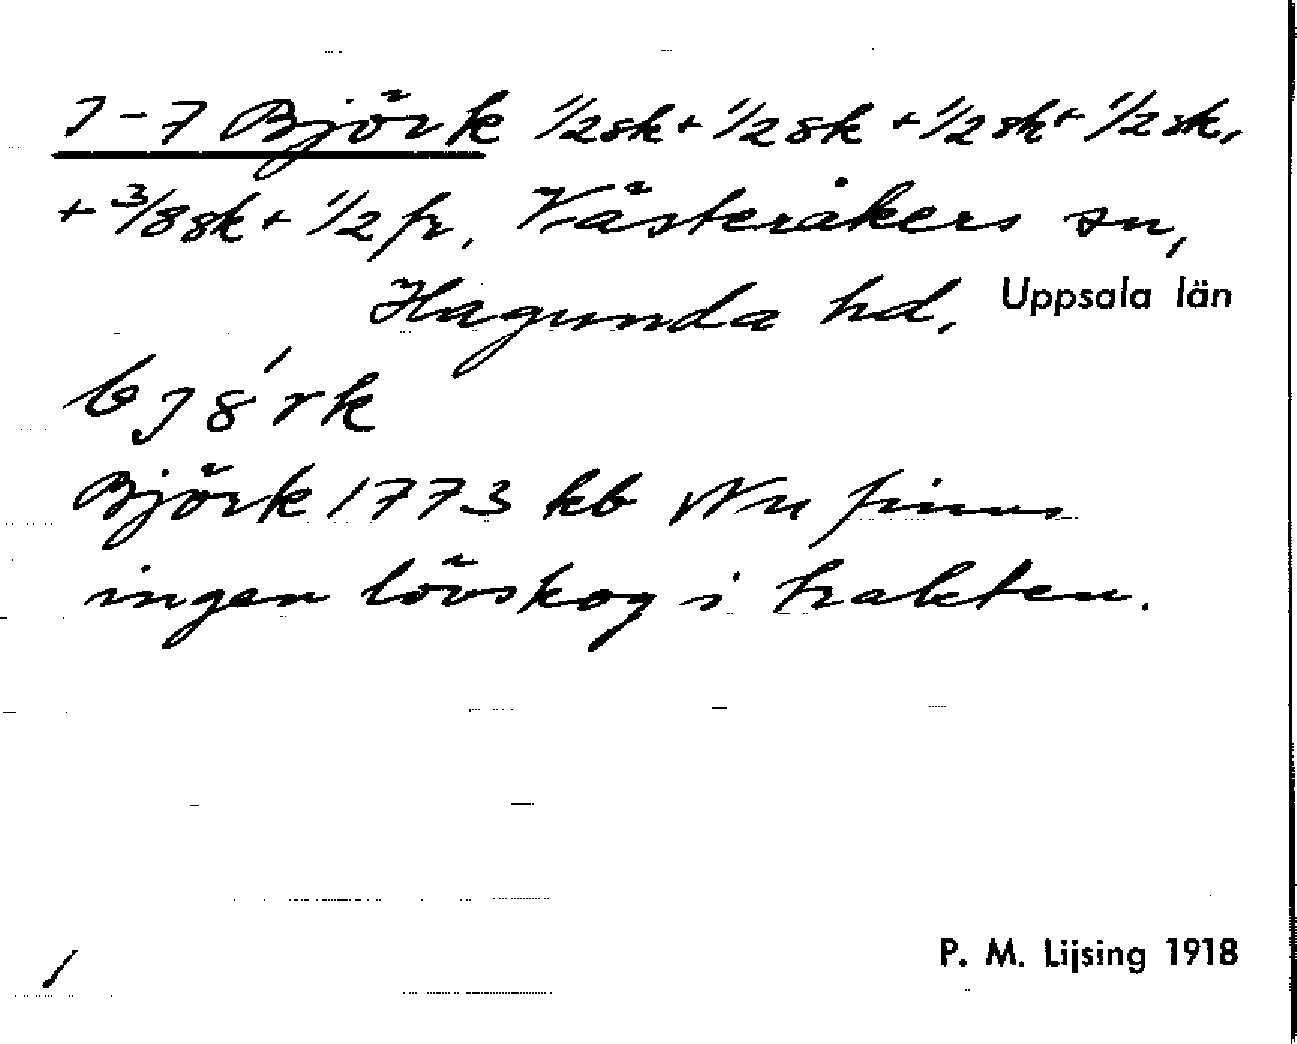 1-7 Björk 1/2 sk + 1/2 sk + 1/2 sk + 1/2 sk,
+ 3/8 sk + 1/2 fr, Västeråkers sn,
Hagunda hd, Uppsala län
bjö́rk
Björk 1773 kb Nu finns
ingen lövskog i trakten.
P. M. Lijsing 1918
/